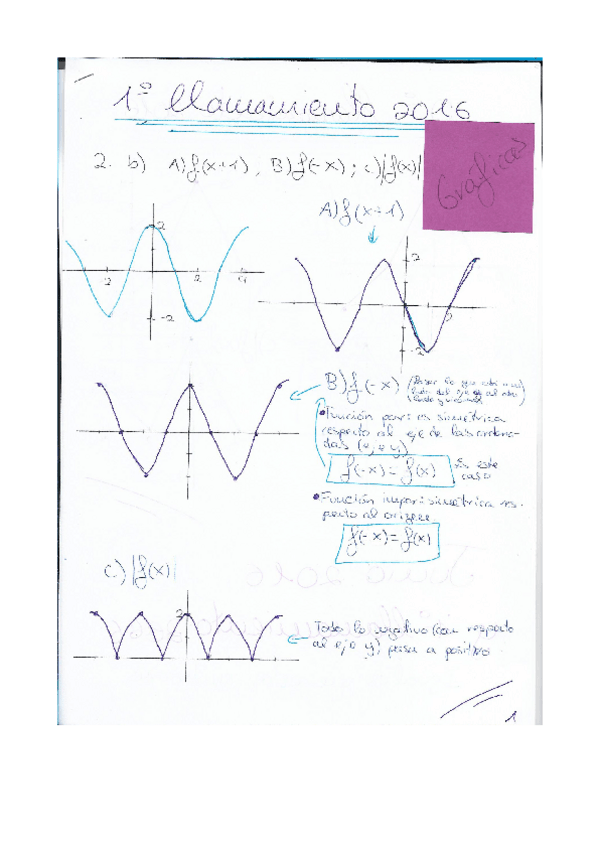 1º llamamiento 2016
Gráficas
2. b) A) f(x+1), B) f(-x); c) |f(x)|
A) f(x+1)
2
-2
2
4
-2
2
2
-2
B) f(-x) (Pasar lo que está a un
lado del eje y al otro
lado y viceversa)
• Función par: es simétrica
respecto al eje de las ordena-
das (eje y)
f(-x) = f(x) En este
caso
• Función impar: simétrica res-
pecto al origen
f(-x) = f(x)
c) |f(x)|
2
Todo lo negativo (con respecto
al eje y) pasa a positivo
1